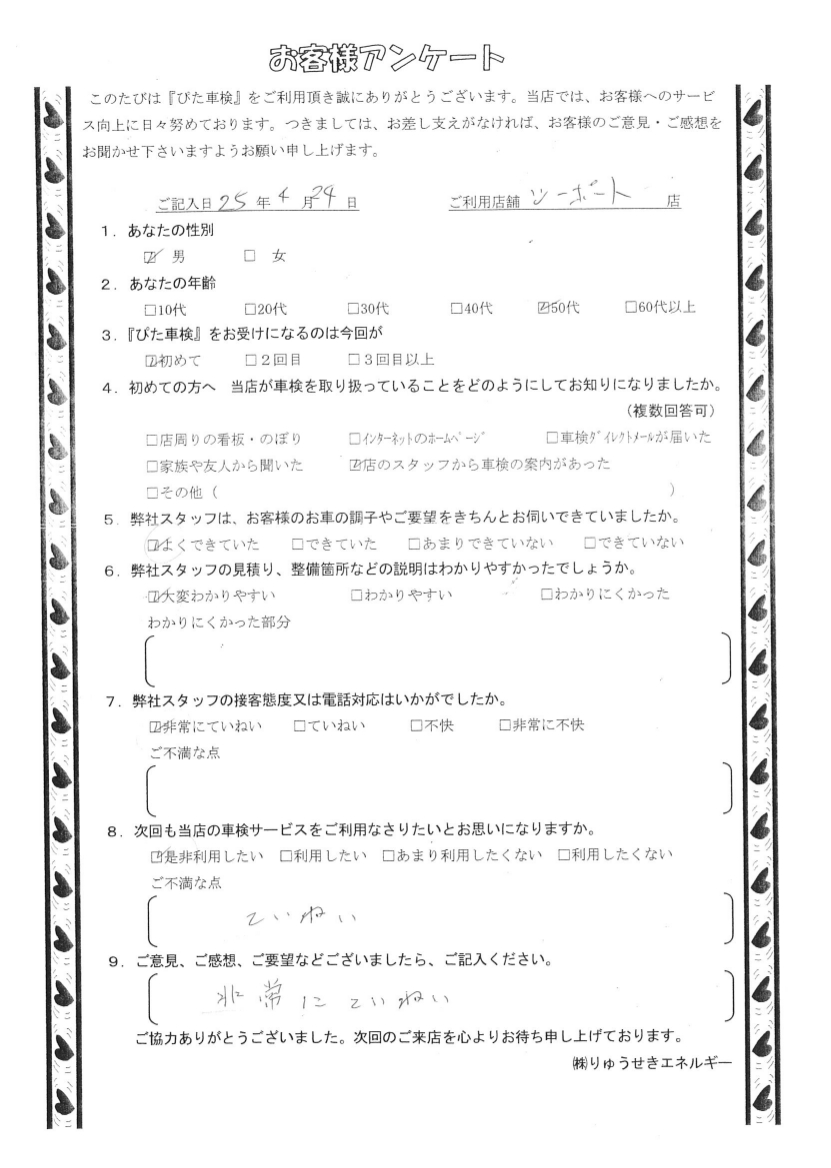 お客様アンケート
このたびは『ぴた車検』をご利用頂き誠にありがとうございます。当店では、お客様へのサービ
ス向上に日々努めております。つきましては、お差し支えがなければ、お客様のご意見・ご感想を
お聞かせ下さいますようお願い申し上げます。
ご記入日 25 年 4 月 29 日 ご利用店舗 シーポート 店
1．あなたの性別
☑ 男 □ 女
2．あなたの年齢
□10代 □20代 □30代 □40代 ☑50代 □60代以上
3．『ぴた車検』をお受けになるのは今回が
☑初めて □２回目 □３回目以上
4．初めての方へ 当店が車検を取り扱っていることをどのようにしてお知りになりましたか。
（複数回答可）
□店周りの看板・のぼり □ｲﾝﾀｰﾈｯﾄのﾎｰﾑﾍﾟｰｼﾞ □車検ﾀﾞｲﾚｸﾄﾒｰﾙが届いた
□家族や友人から聞いた ☑店のスタッフから車検の案内があった
□その他（ ）
5．弊社スタッフは、お客様のお車の調子やご要望をきちんとお伺いできていましたか。
☑よくできていた □できていた □あまりできていない □できていない
6．弊社スタッフの見積り、整備箇所などの説明はわかりやすかったでしょうか。
☑大変わかりやすい □わかりやすい □わかりにくかった
わかりにくかった部分
7．弊社スタッフの接客態度又は電話対応はいかがでしたか。
☑非常にていねい □ていねい □不快 □非常に不快
ご不満な点
8．次回も当店の車検サービスをご利用なさりたいとお思いになりますか。
☑是非利用したい □利用したい □あまり利用したくない □利用したくない
ご不満な点
ていねい
9．ご意見、ご感想、ご要望などございましたら、ご記入ください。
非常にていねい
ご協力ありがとうございました。次回のご来店を心よりお待ち申し上げております。
㈱りゅうせきエネルギー